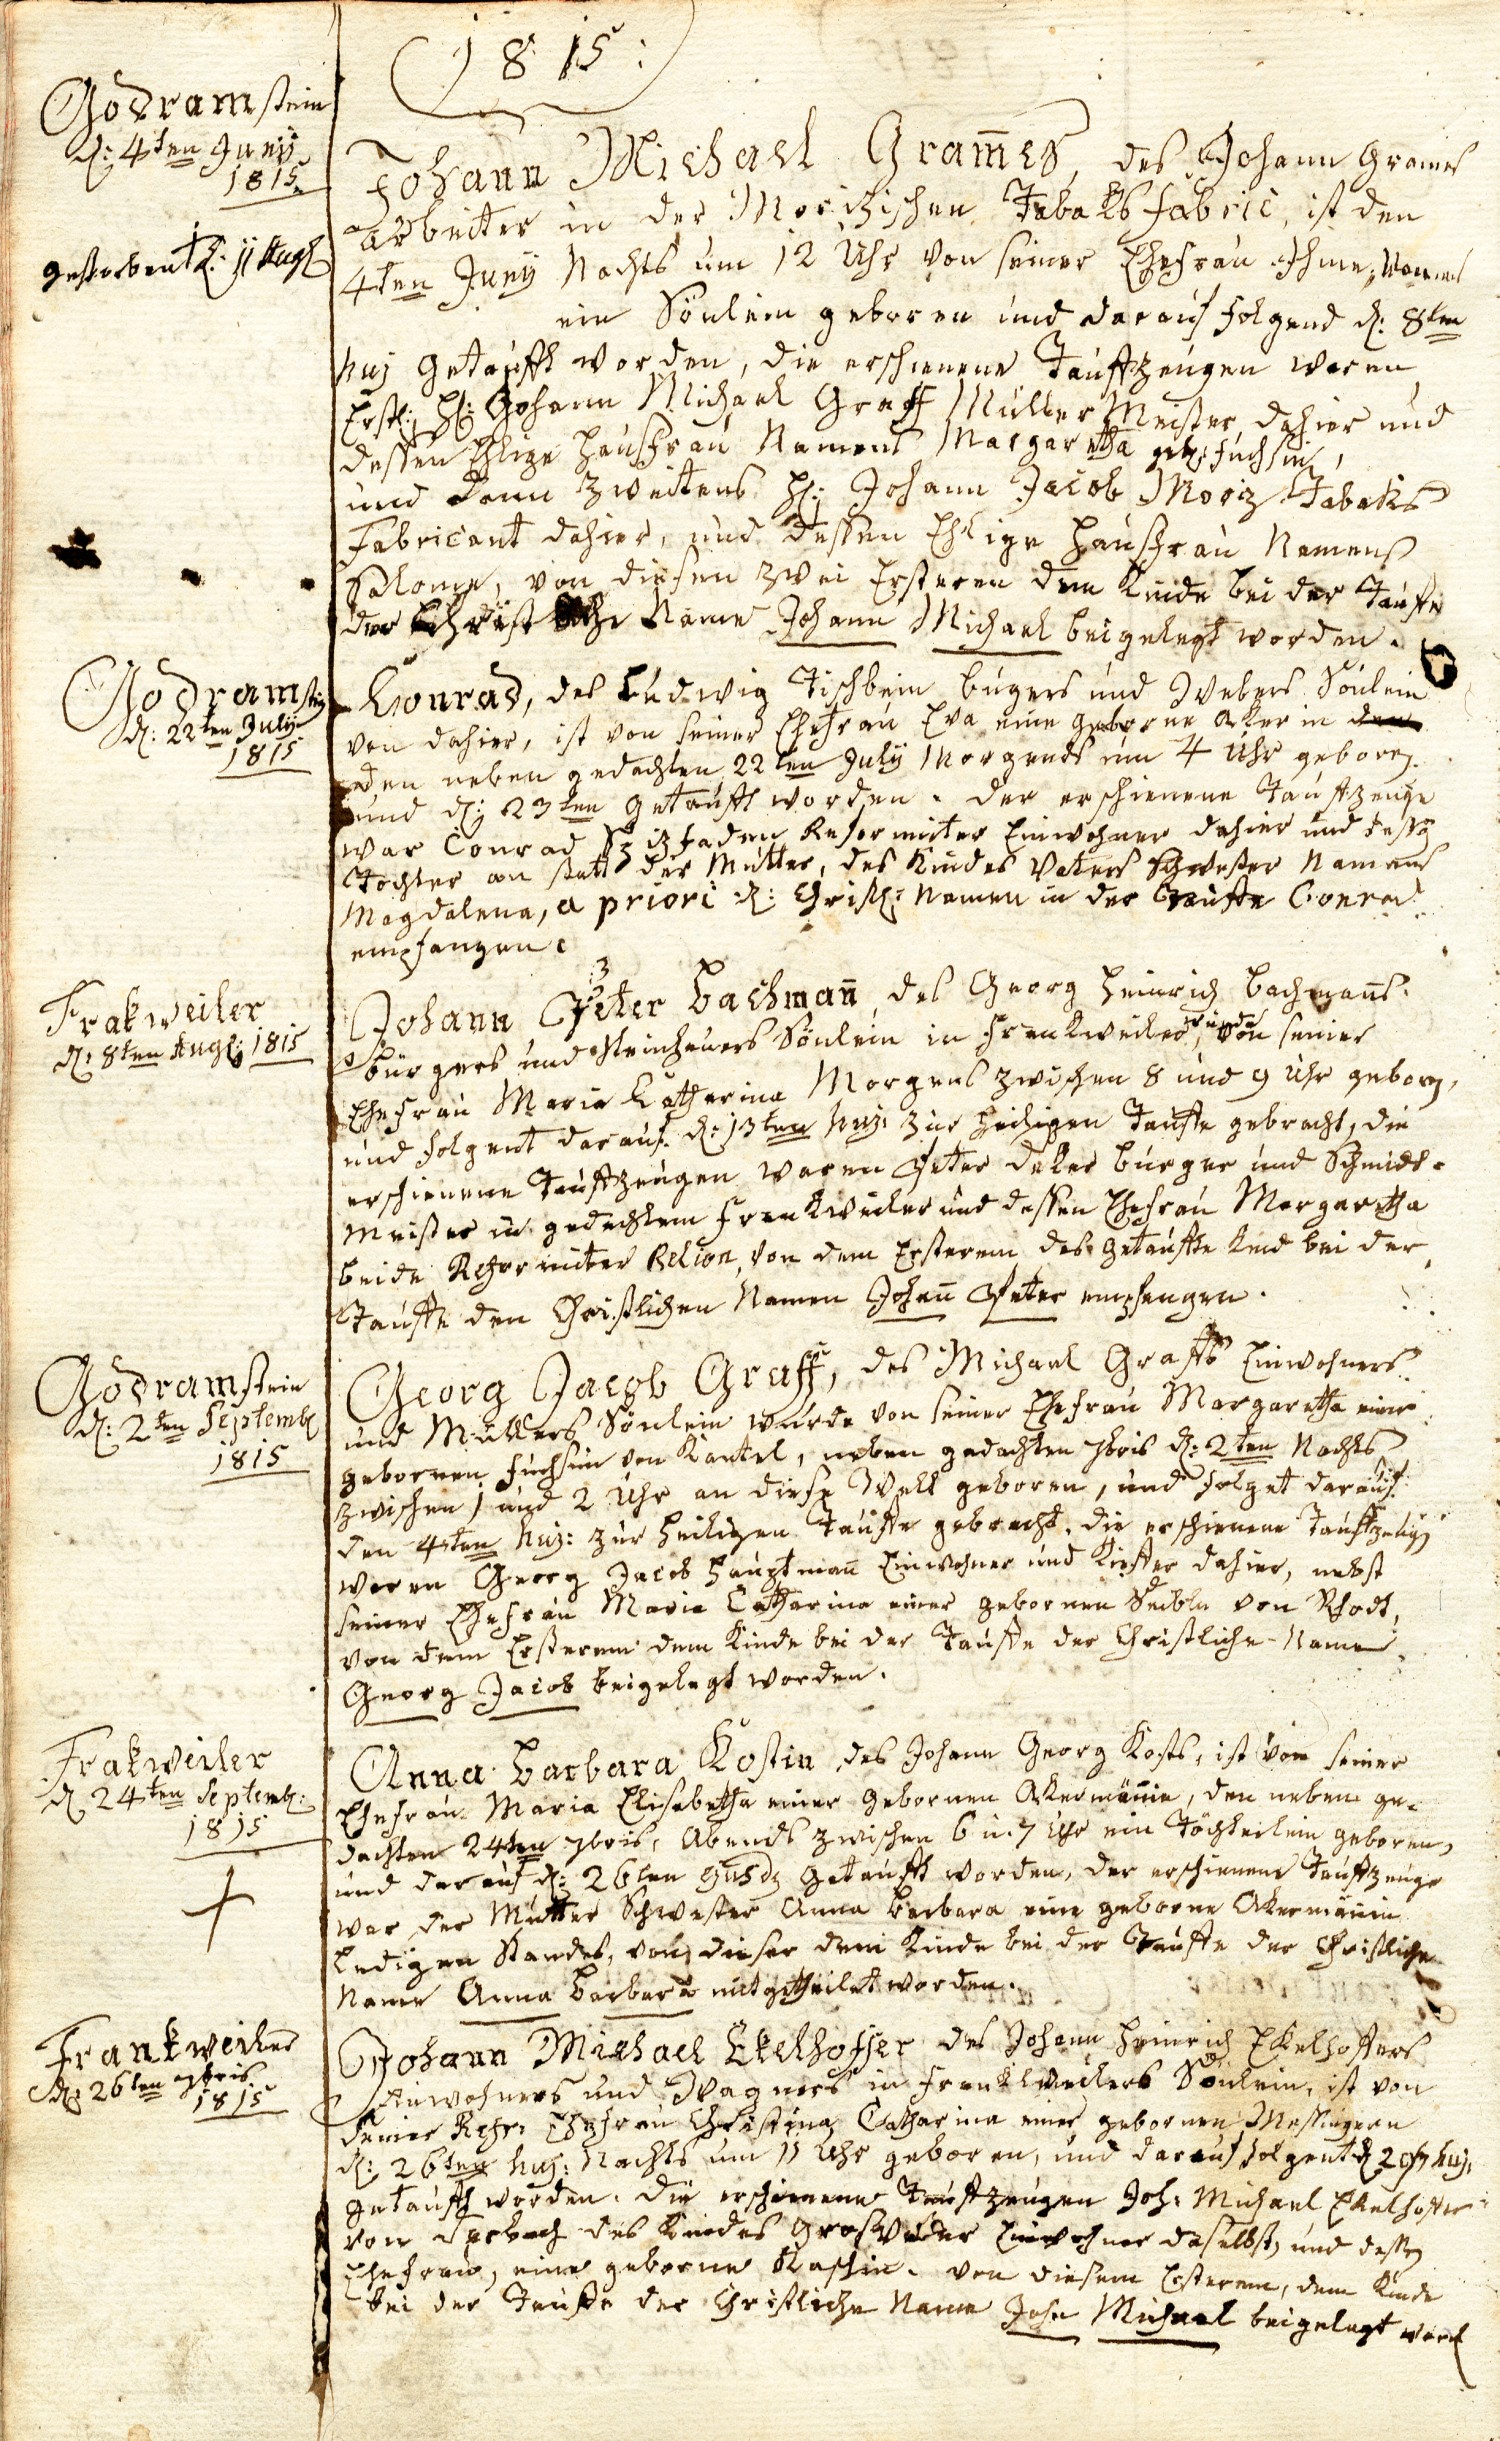 1815:
Godramstein
d: 4ten Junÿ
1815
gestorben † d: 11 Augl
Johann Michael Gram̄es, des Johann Grames
arbeiter in der Morizischen Tabaks fabric, ist den
4ten Junÿ Nachts um 12 Uhr von seiner Ehefrau
ein Sönlein geboren und darauf folgend d: 8ten
huj getaufft worden, die erschienene Tauffzeugen waren
Erstl: H: Johann Michael Graff Müller Meister dahier und
dessen Ehlige Hausfrau Namens Margaretha geb: fuchsin,
und dann zweitens H: Johann Jacob Moriz Tabaks
Fabricant dahier, und dessen Ehlige Hausfrau Namens
Salome, von diesen zwei Ersteren dem Kinde bei der Tauffe
der Name Johann Michael beigelegt worden.
Godramstein
d: 22ten Julÿ
1815
Konrad, des Ludwig Tischbein bürgers und Webers Sönlein
von dahier, ist von seiner Ehefrau Eva eine geborne Akerin
den neben gedachten 22ten Julÿ Morgends um 4 Uhr geboren
und d: 23ten getaufft worden. der erschienene Tauffzeuge
war Conrad Spizfaden Reformirter Einwohner dahier und dessen
Tochter an statt der Mutter, des Kindes Vaters Schwester Namens
Magdalena, a priori d: Christl: Namen in der Tauffe Conrad
empfangen.
Frakweiler
d: 8ten Augl: 1815
Johann Peter Bachman̄, des Georg Heinrich Bachman̄s
Bürgers und Steinhauers Sönlein in Frankweiler, wurde von seiner
Ehefrau Maria Katharina Morgens zwischen 8 und 9 Uhr geboren,
und folgent darauf d: 13ten huj: zur heiligen Tauffe gebracht, die
erschienene Tauffzeugen waren Peter Deker bürger und Schmidt-
meister in gedachtem Frankweiler und dessen Ehefrau Margaretha
beide Reformirter Relion, von dem Ersterem das getauffte Kind bei der
Tauffe den Christlichen Namen Johan̄ Peter empfangen.
Godramstein
d: 2ten Septembl
1815
Georg Jacob Graff, des Michael Graffs Einwohners
und Müllers Sönlein wurde von seiner Ehefrau Margaretha einer
gebornen Fuchsin von Kantel, neben gedachten 7bris d: 2ten Nachts
zwischen 1 und 2 Uhr an diese Welt geboren, und folget darauf
den 4ten huj: zur heiligen Tauffe gebracht. die erschienene Tauffzeugen
waren Georg Jacob Hauptman̄ Einwohner und Kieffer dahier, nebst
seiner Ehefrau Maria Catharina einer gebornen von Rhodt,
von dem Ersterem dem Kinde bei der Tauffe der Christliche Name
Georg Jacob beigelegt worden.
Frakweiler
d 24ten Septembl:
1815
Anna Barbara Kostin des Johann Georg Kosts, ist von seiner
Ehefrau Maria Elisabetha einer gebornen Akermän̄in, den neben ge-
dachten 24ten 7bris, Abends zwischen 6 u. 7 Uhr ein Töchterlein geboren,
und darauf d: 26ten getaufft worden, der erschienene Tauffzeuge
war der Mutter Schwester Anna Barbara eine geborne Akermän̄in
ledigen Standes, von dieser dem Kinde bei der Tauffe der Christliche
Name Anna Barbara mitgetheilet worden.
Frankweiler
d: 26ten 7bris
1815
Johann Michael Ekelhoffer des Johann Heinrich Ekelhoffers
Einwohners und Wagners in Frankweilers Sönlein, ist von
seiner Refr: Ehefrau Christina Catharina einer gebornen Messingern
d: 26ten huj: Nachts um 11 Uhr geboren, und darauf folgent d 29 huj:
getaufft worden. Die erschienene Tauffzeugen Joh: Michael Ekelhoffer
von des Kindes Grosvater Einwohner daselbst, und dessen
Ehefrau, eine geborne. von diesem Ersterem, dem Kinde
bei der Tauffe der Christliche Name Joha Michael beigelegt word